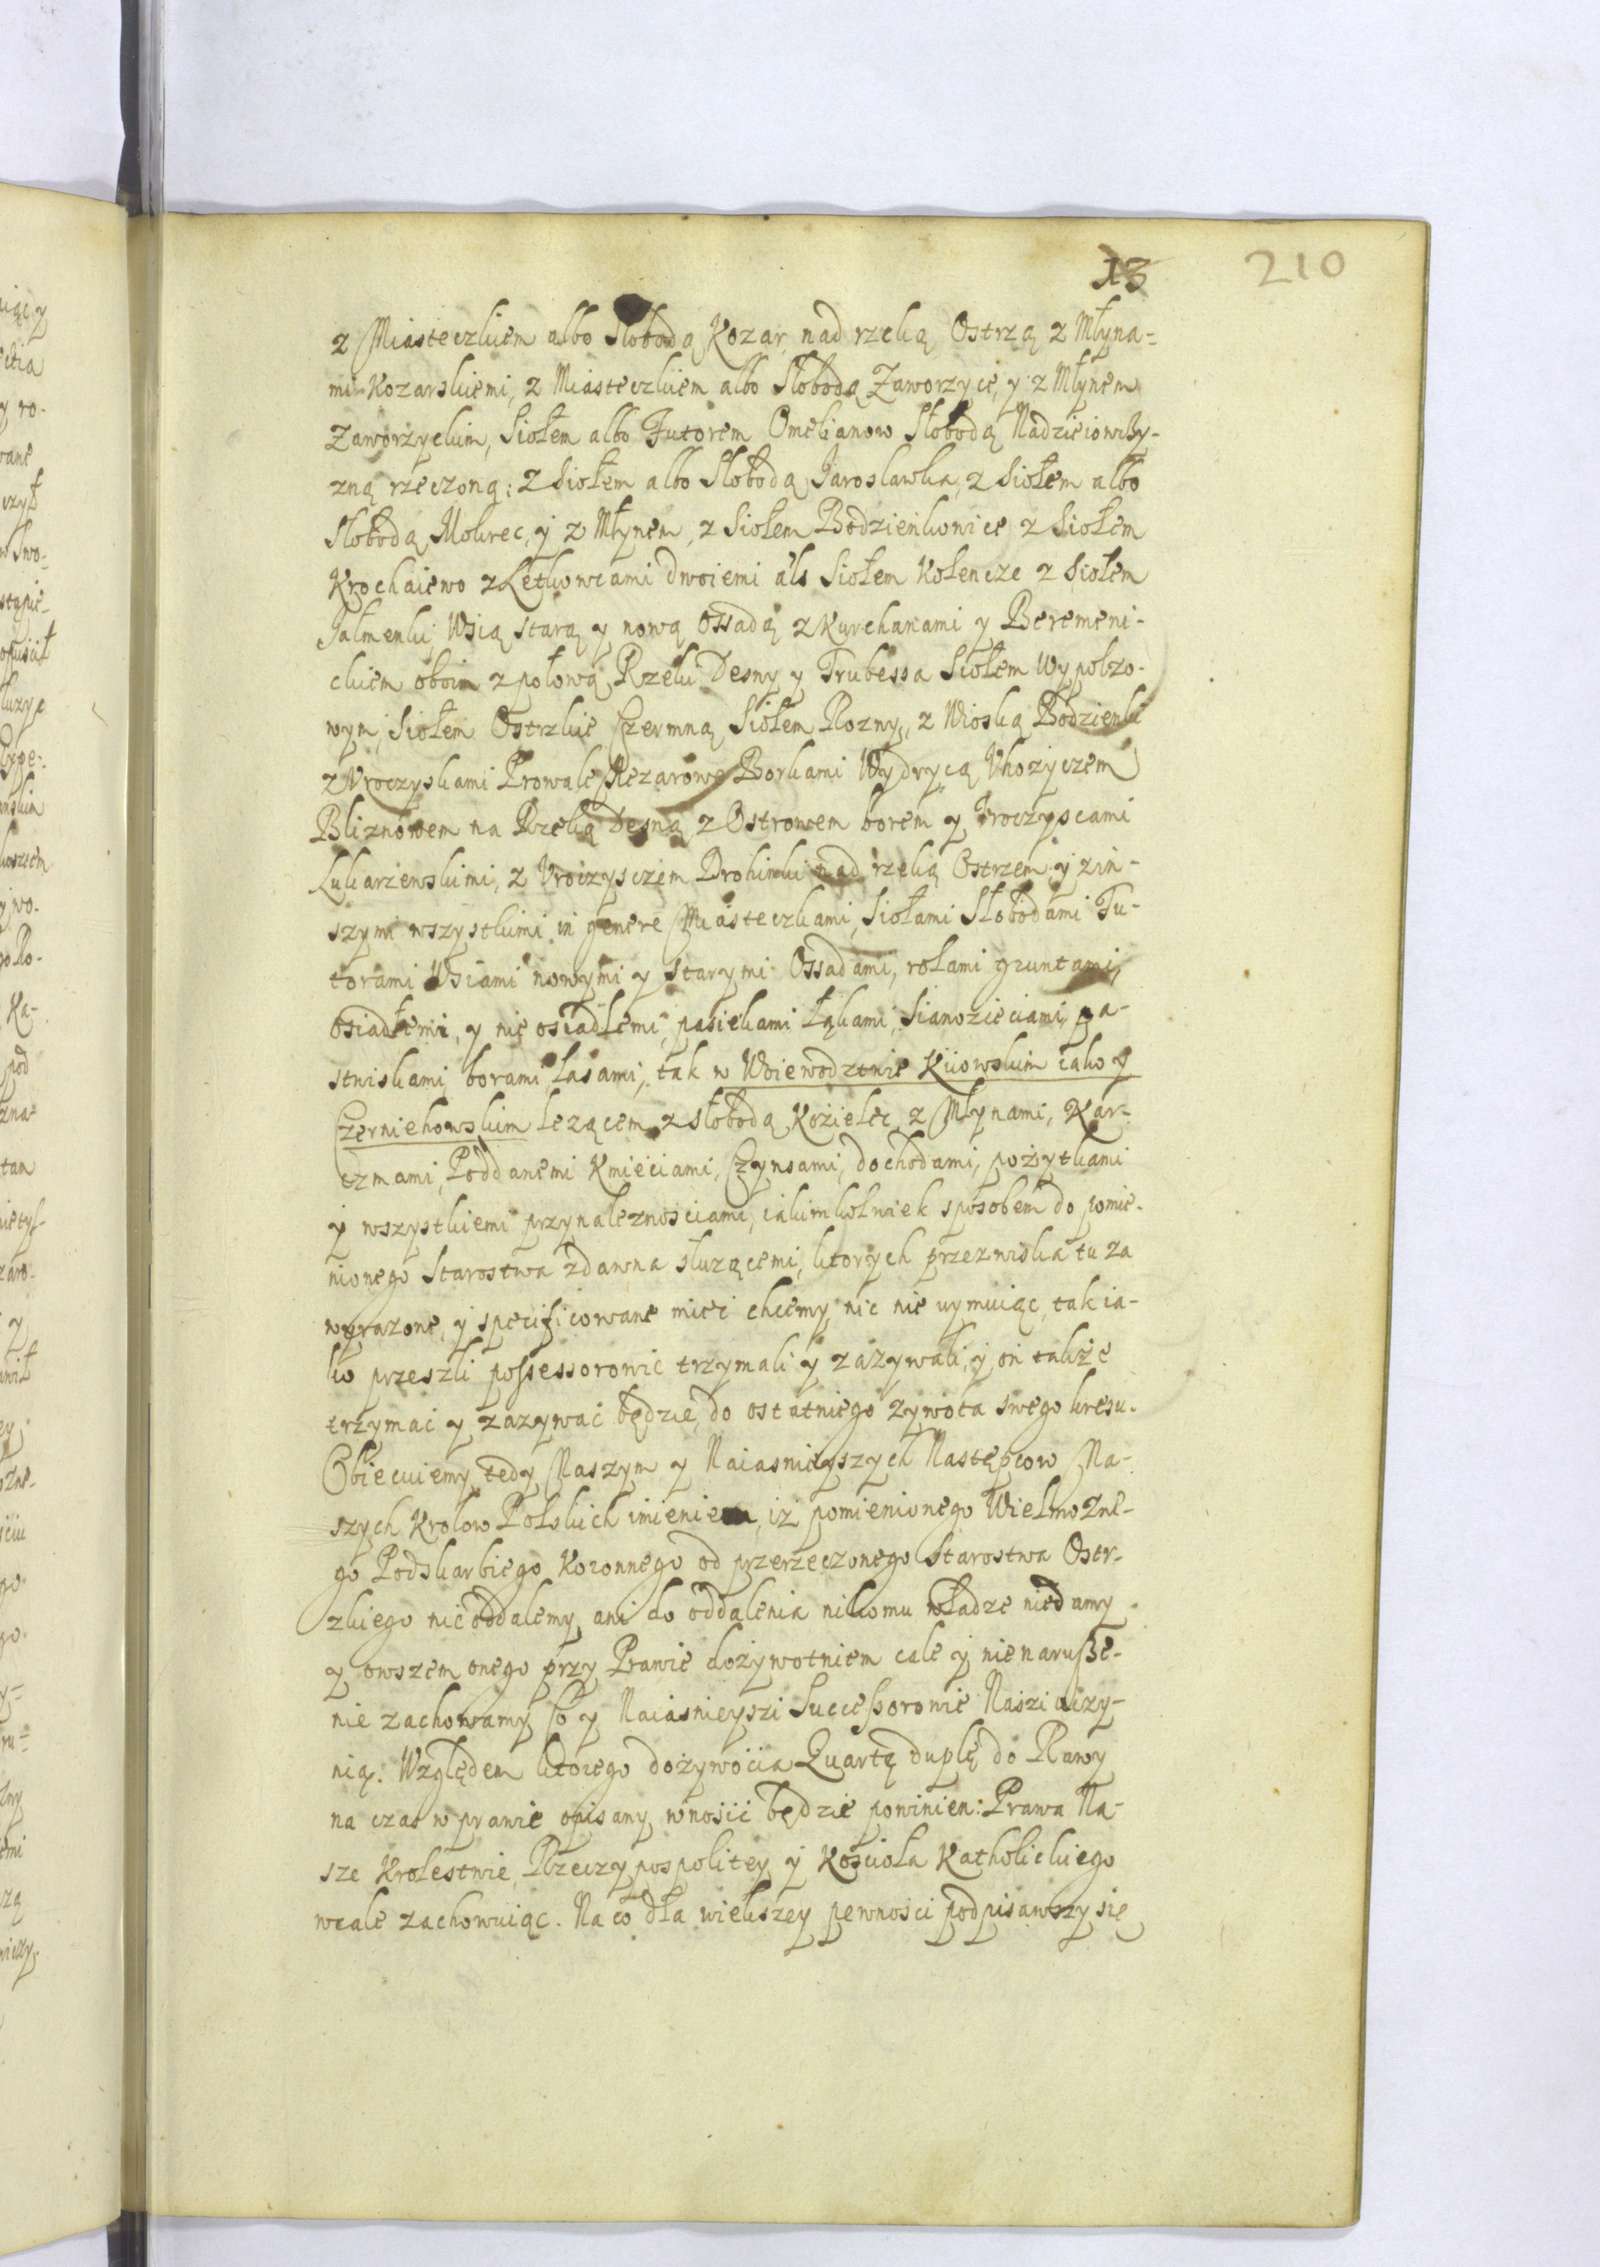 13
210
z Miasteczkiem albo Słobodą Kozar, nad rzeką Ostrzą z Młyna-
mi Kozarskiemi, z Miasteczkiem albo Słobodą Zaworzyce, y z Młynem
Zaworzyckim, Siołem albo Futorem Omelianow Słobodą Nadzieiowszy-
zną rzeczoną: z Siołem albo Słobodą Jarosławka, z Siołem albo
Słobodą Mokrec, y z Młynem, z Siołem Bodzieńkowice z Siołem
Krochaiewo z Letkowcami dwoiemi als Siołem Kołencze z Siołem
Jałmenki, Wsią starą y nową Ossadą z Kurchanami y Beremeni-
ckiem oboim z połową Rzeki Desny y Trubessa Siołem Wypołzo-
wym, Siołem Ostrzkie Czermną Siołem Rozny, z Wioską Bodzienki
z Vroczyskami Prowale Mezarowe Borkami Wydrycą Vhożyczem
Bliznowem na Rzeką Desną z Ostrowem borem y Vroczyscami
Lukarzewskimi, z Vroczysczem Drohimki nad rzeką Ostrzem, y zin-
szymi wszystkimi in genere Miasteczkami, Siołami Słobodami Fu-
torami Wsiami nowymi y Starymi Ossadami, rolami gruntami,
osiadłemi, y nie osiadłemi, pasiekami łąkami, Sianozieciami, pa-
stwiskami, borami, lasami, tak w Woiewodztwie Kiiowskim iako y
Czerniehowskim lezącem z słobodą Kozielec, z Młynami, Kar-
czmami, Poddanemi Kmieciami, Czynsami, dochodami, pożytkami
y wszystkiemi przynaleznosciami, iakimkolwiek sposobem do pomie-
nionego Starostwa zdawna słuzącemi, ktorych przezwiska tu za
wyrazone, y specificowane mieć chcemy, nic nie vymuiąc, tak ia-
ko przeszli possessorowie trzymali y zazywali, y on także
trzymać y zazywać będzie, do ostatniego żywota swego kresu.
Obiecuiemy tedy Naszym y Naiasnieyszych Następcow Na-
szych Krolow Polskich imieniem, iz pomienionego Wielmożne-
go Podskarbiego Koronnego od przerzeczonego Starostwa Ostr-
zkiego nie oddalemy, ani do oddalenia nikomu władze niedamy
y owszem onego przy Prawie dożywotniem cale y nienarusze-
nie zachowamy, co y Naiasnieyszi Successorowie Naszi vczy-
nią. Względem ktorego dożywocia Quartę duplę do Rawy
na czas w prawie opisany wnosić będzie powinien: Prawa Na-
sze Krolestwie, Rzeczypospolitey y Kościoła Katholickiego
wcale zachowuiąc. Na co dla większey pewności podpisawszy się